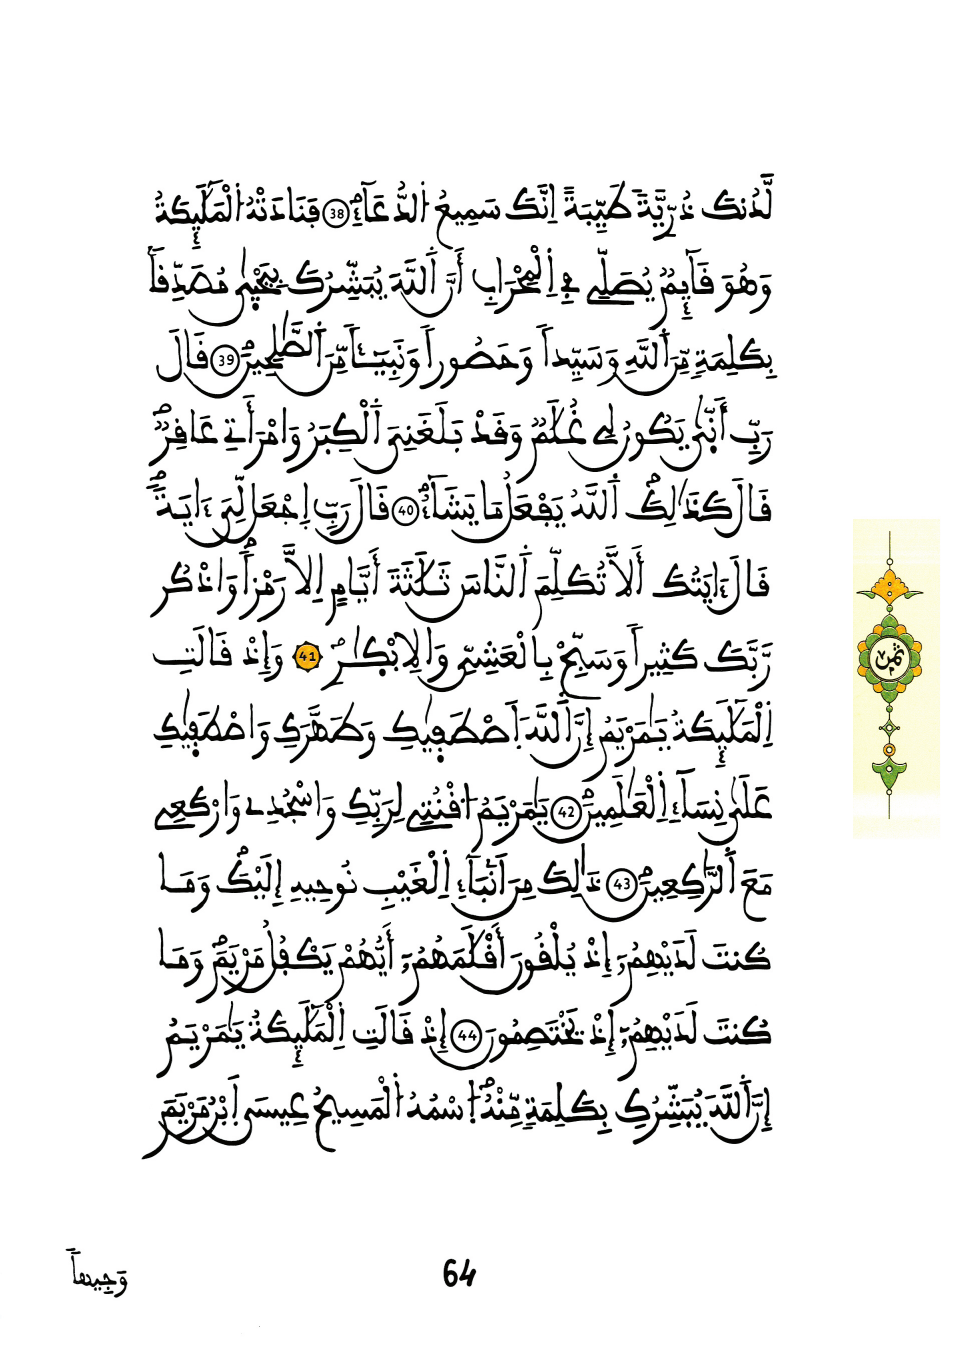 لَّدُنكَ ذُرِّيَّةٗ طَيِّبَةً اِنَّكَ سَمِيعُ اُ۬لدُّعَآءِۖ 38 فَنَادَتْهُ اُ۬لْمَلَٰٓئِكَةُ
وَهُوَ قَآئِمٞ يُصَلِّے فِے اِ۬لْمِحْرَابِ أَنَّ اَ۬للَّهَ يُبَشِّرُكَ بِيَحْيۭيٰ مُصَدِّقاَۢ
بِكَلِمَةٖ مِّنَ اَ۬للَّهِ وَسَيِّداٗ وَحَصُوراٗ وَنَبِيٓـٔاٗ مِّنَ اَ۬لصَّٰلِحِينَۖ 39 قَالَ
رَبِّ أَنّ۪يٰ يَكُونُ لِے غُلَٰمٞ وَقَدْ بَلَغَنِيَ اَ۬لْكِبَرُ وَامْرَأَتِے عَاقِرٞۖ
قَالَ كَذَٰلِكَۖ اَ۬للَّهُ يَفْعَلُ مَا يَشَآءُۖ 40 قَالَ رَبِّ اِجْعَل لِّيَ ءَايَةٗۖ
قَالَ ءَايَتُكَ أَلَّا تُكَلِّمَ اَ۬لنَّاسَ ثَلَٰثَةَ أَيَّامٍ اِلَّا رَمْزاٗۖ وَاذْكُر
رَّبَّكَ كَثِيراٗ وَسَبِّحْ بِالْعَشِيِّ وَالِابْكٰ۪رِۖ 41 وَإِذْ قَالَتِ
اِ۬لْمَلَٰٓئِكَةُ يَٰمَرْيَمُ إِنَّ اَ۬للَّهَ اَ۪صْطَف۪يٰكِ وَطَهَّرَكِ وَاصْطَف۪يٰكِ
عَلَيٰ نِسَآءِ اِ۬لْعَٰلَمِينَۖ 42 يَٰمَرْيَمُ اُ۟قْنُتِے لِرَبِّكِ وَاسْجُدِے وَارْكَعِے
مَعَ اَ۬لرَّٰكِعِينَۖ 43 ذَٰلِكَ مِنَ اَنۢبَآءِ اِ۬لْغَيْبِ نُوحِيهِ إِلَيْكَۖ وَمَا
كُنتَ لَدَيْهِمُۥٓ إِذْ يُلْقُونَ أَقْلَٰمَهُمُۥٓ أَيُّهُمْ يَكْفُلُ مَرْيَمَۖ وَمَا
كُنتَ لَدَيْهِمُۥٓ إِذْ يَخْتَصِمُونَ 44 إِذْ قَالَتِ اِ۬لْمَلَٰٓئِكَةُ يَٰمَرْيَمُ
إِنَّ اَ۬للَّهَ يُبَشِّرُكِ بِكَلِمَةٖ مِّنْهُۖ اُ۪سْمُهُ اُ۬لْمَسِيحُ عِيسَى اَ۪بْنُ مَرْيَمَ
ثمن
64
وَجِيهاٗ